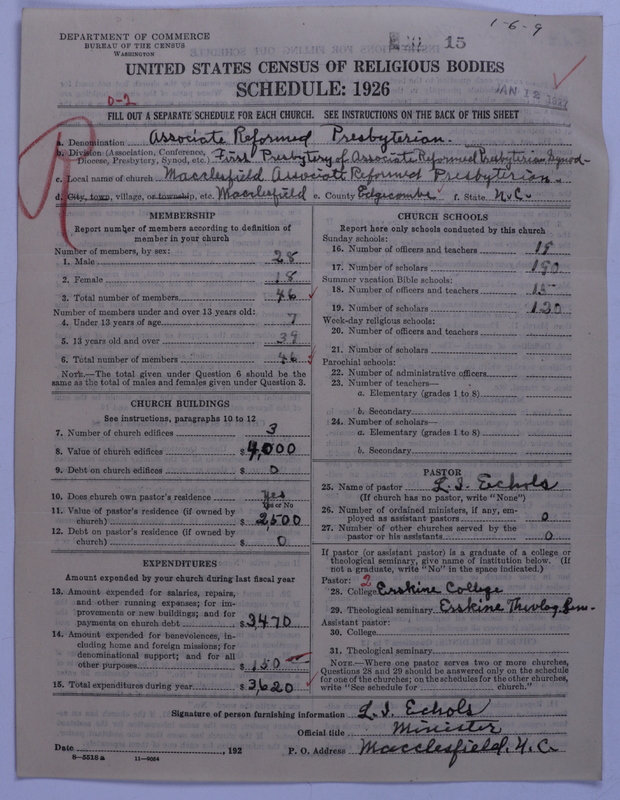 1-6-9
DEPARTMENT OF COMMERCE
BUREAU OF THE CENSUS
WASHINGTON
15
UNITED STATES CENSUS OF RELIGIOUS BODIES
SCHEDULE: 1926
JAN 12 1927
0-2
FILL OUT A SEPARATE SCHEDULE FOR EACH CHURCH. SEE INSTRUCTIONS ON THE BACK OF THIS SHEET
R
a. Denomination Associate Reformed Presbyterian.
b. Division (Association, Conference, Diocese, Presbytery, Synod, etc.) First Presbytery of Associate Reformed Presbyterian Synod
c. Local name of church Macclesfield Associate Reformed Presbyterian.
d. City, town, village, or township, etc. Macclesfield e. County Edgecombe f. State N.C.
MEMBERSHIP
Report number of members according to definition of
member in your church
Number of members, by sex:
1. Male 28
2. Female 18
3. Total number of members 46
Number of members under and over 13 years old:
4. Under 13 years of age 7
5. 13 years old and over 39
6. Total number of members 46
NOTE.—The total given under Question 6 should be the
same as the total of males and females given under Question 3.
CHURCH BUILDINGS
See instructions, paragraphs 10 to 12
7. Number of church edifices 3
8. Value of church edifices $4,000
9. Debt on church edifices $ 0
10. Does church own pastor's residence yes
Yes or No
11. Value of pastor's residence (if owned by
church) $2,500
12. Debt on pastor's residence (if owned by
church) $ 0
EXPENDITURES
Amount expended by your church during last fiscal year
13. Amount expended for salaries, repairs,
and other running expenses; for im-
provements or new buildings; and for
payments on church debt $3470
14. Amount expended for benevolences, in-
cluding home and foreign missions; for
denominational support; and for all
other purposes $150
15. Total expenditures during year $3,620
CHURCH SCHOOLS
Report here only schools conducted by this church
Sunday schools:
16. Number of officers and teachers
17. Number of scholars
Summer vacation Bible schools:
18. Number of officers and teachers 15
19. Number of scholars 120
Week-day religious schools:
20. Number of officers and teachers
21. Number of scholars
Parochial schools:
22. Number of administrative officers
23. Number of teachers—
a. Elementary (grades 1 to 8)
b. Secondary
24. Number of scholars—
a. Elementary (grades 1 to 8)
b. Secondary
PASTOR
25. Name of pastor L. I. Echols
(If church has no pastor, write "None")
26. Number of ordained ministers, if any, em-
ployed as assistant pastors 0
27. Number of other churches served by the
pastor or his assistants 0
If pastor (or assistant pastor) is a graduate of a college or
theological seminary, give name of institution below. (If
not a graduate, write "No" in the space indicated.)
Pastor: 2
28. College Erskine College
29. Theological seminary Erskine Theolog. Sem.
Assistant pastor:
30. College
31. Theological seminary
NOTE.—Where one pastor serves two or more churches,
Questions 28 and 29 should be answered only on the schedule
for one of the churches; on the schedules for the other churches,
write "See schedule for church."
Signature of person furnishing information L. I. Echols
Official title Minister
Date , 192 P. O. Address Macclesfield, N.C.
9-5518a 11-9054